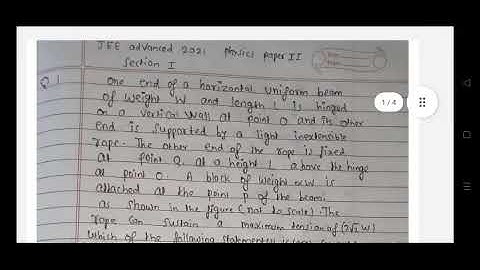 JEE advanced 2021 physics paper II
Section I
Q.1 One end of a horizontal uniform beam
of weight W and length L is hinged
on a vertical wall at point O and its other
end is supported by a light inextensible
rope. The other end of the rope is fixed
at point Q, at a height L above the hinge
at point O. A block of weight αW is
attached at the point P of the beam,
as shown in the figure (not to scale). The
rope can sustain a maximum tension of (2√2 W)
which of the following statement(s) is
1/4